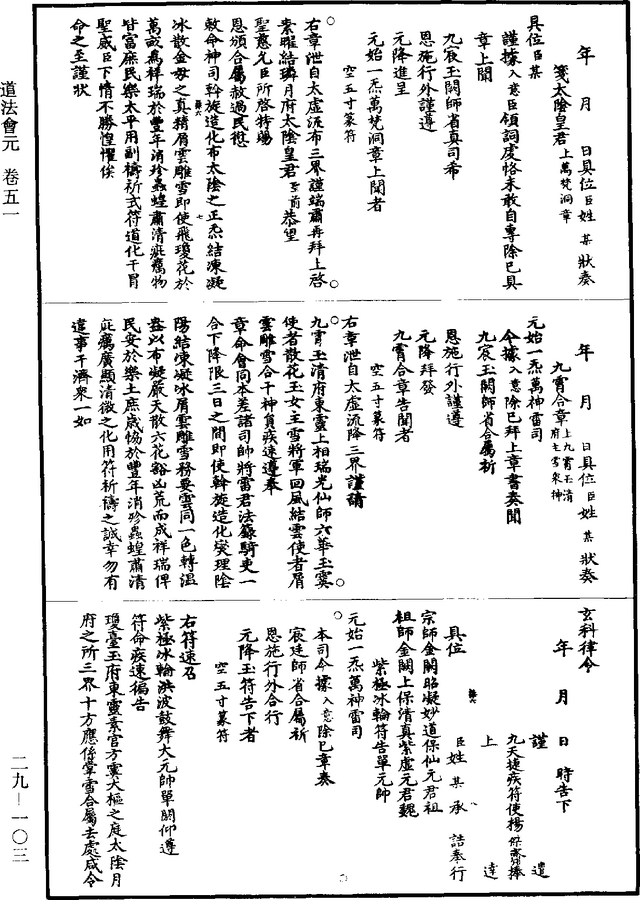 道法會元 卷五一
二九—一〇三
年 月 日具位臣姓 某 狀奏
箋太陰皇君上萬梵洞章
具位臣某
謹據入意臣領詞虔恪未敢自專除已具
章上聞
九宸玉闕師省真司希
恩施行外謹遵
元降進呈
元始一炁萬梵洞章上聞者
空五寸篆符
右章泄自太虛流布三界謹端肅再拜上啓
素曜結璘月府太陰皇君 恭望
聖慈允臣所啓特賜
恩頒合屬赦過民愆
敕命神司斡旋造化布太陰之正炁結凍凝
冰散金母之真精屑雲雕雪即使飛瓊花於
萬畝為祥瑞於豐年消殄蟲蝗肅清疵癘物
皆富庶民樂太平用副禱祈式符道化干冒
聖威臣下情不勝惶懼俟
命之至謹狀
年 月 日具位臣姓 某 狀奏
九霄合章上九霄玉清府主雪衆神
元始一炁萬神雷司
今據入意除已拜上章書奏聞
九宸玉闕師省合屬祈
恩施行外謹遵
元降拜發
九霄合章告聞者
空五寸篆符
右章泄自太虛流降三界謹請
九霄玉清府東靈上相瑞光仙師六華玉霙
使者散花玉女王雪將軍回風結雲使者屑
雲雕雪合干神員疾速遵奉
章命會同本差諸司帥將雷君法籙騎吏一
合下降限三日之間即使斡旋造化燮理陰
陽結凍凝冰屑雲雕雪務要雲同一色轉溫
燠以布凝嚴天散六花豁凶荒而成祥瑞俾
民安於樂土庶歲協於豐年消殄蟲蝗肅清
疵癘廣顯清微之化用符祈禱之誠幸勿有
違事干濟衆一如
玄科律令
年 月 日 時告下
謹 遣
九天捷疾符使楊傑齎捧
上 達
臣姓 某 承 誥奉行
具位
宗師金闕昭凝妙道保仙元君祖
祖師金闕上保清真紫虛元君魏
紫極冰輪符告單元帥
元始一炁萬神雷司
本司今據入意除已章奏
宸廷師省合屬祈
恩施行外合行
元降玉符告下者
空五寸篆符
右符速召
紫極冰輪洪波鼓舞大元帥單闕仰遵
符命疾速徧告
瓊臺玉府東靈素宮方霙大樞之庭太陰月
府之所三界十方應係掌雪合屬去處咸令